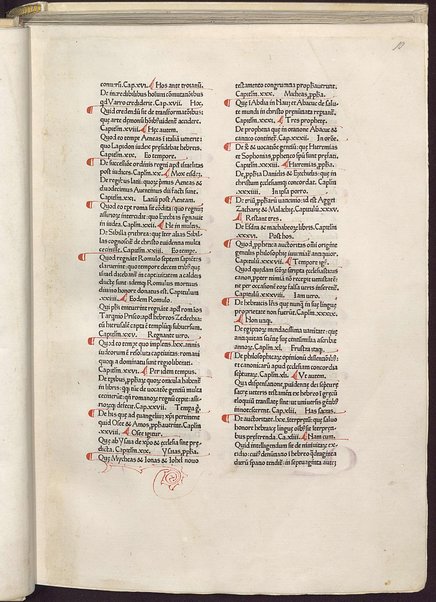 comitu℞. Cap.xvi. Hos ante troianū.
De incredibilibus hoium cōmutatōibus
qd Varro crediderit. Cap.xvii. Hoc
Quid credēdū sit de transformatōibus:
que arte dęmonū hōibꝰ uidēꝛ accidere.
Capitlm.xviii. Hęc autem.
Quod eo tempe Aeneas ī italiā uenerit:
quo Labdon iudex presidebat hebreis.
Capitlm.xix. Eo tempore.
De successiōe ordinis regni apd israelitas
post iudices. Capitlm.xx. Mox
De regibus Latii: quo℞ prīmus Aeneas &
duodecimus Auentinus dii facti sunt.
Capitlm.xxi. Latiū post Aeneam.
Quod eo tpe roma sit cōdita: quo regnū
assyrio℞ intercidit: quo Ezechias regnauit
in iudea. Capitlm.xxii.
De Sibilla erithrea: que inter alias Sibil-
las cognoscit de christo euidentia multa
cecinisse. Capitlm.xxiii. Eo tempe.
Quod regnāte Romulo septem sapiētes
claruerint: quo tempore decem tribꝰ q̄
israel dicebant̄ in captiuitatem a caldeis
ductę sunt: idemq; Romulus mortuus
diuino honore donatus est. Capitulum
.xxiiii. Eodem Romulo.
Qui phi enituerint regnāte apd romāos
Tarqnio Prisco: apd hebreos Zedechia:
cū hierusalē capta ē templūq; subuersum.
Capitlm.xxv. Regnante uero.
Quod eo tempe quo impletis .lxx. annis
iudeorum ē resoluta captiuitas: romani
quoq; a dominatu sunt regio liberati.
Capitlm.xxvi. Per idem tempus.
De tpibus, pphāta℞ quo℞ oracula habent̄
in libris: qq; nunc de uocatōe gentiū multa
cecinerūt: qn romano℞ regnū cępit: assi-
rio℞q; defecit. Cap.xxvii. Tempa
De his que ad euangeliū xp̄i pertinent
quid Osee & Amos, pphauerint. Capitlm
.xxviii. Osee igitur.
Que ab Ysaia de xp̄o & ecclesia sint pre-
dicta. Capitlm.xxix. Ysaias, ppha.
Que Mycheas & Ionas & Iohel nouo
10
testamento congruentia prophauerunt.
Capitlm.xxx. Micheas, ppha.
Que ī Abdia in Naū et Abacuc de salu-
te mundi in christo pręnuntiata reperiant̄.
Capitlm.xxxi. Tres prophetę.
De propheta que in oratione Abacuc &
cantico continet̄. Capitlm.xxxii. In
De & uocatōe gentiū: que Hieremias
et Sophonias, pphetico spū sunt pręfati.
Capitlm.xxxiii. Hieremias, ppha.
De, ppha Danielis & Ezechielis: que in
christum ecclesiamq; concordat. Capitlm
.xxxiiii. In ipsa porro.
De triū, pphetarū uaticinio: id est Aggei
Zacharię & Malachię. Capitulū.xxxv.
Restant tres.
De Esdra & machabeo℞ libris. Capitlm
.xxxvi. Post hos.
Quod, pphetica auctoritas oīni origine
gentilis philosophię inueniat̄ antiquior.
Capitlm.xxxvii. Tempore
Quod quędam scripta ecclesiasticus
canon, ppter nimiam nō receperit uetustatē:
ne per occasionē eo℞ falsa ueris inserent̄.
Capitulū.xxxviii. Iam uero.
De hebraicis lris que nunq; in suę linguę
proprietate non fuerūt. Capitlm.xxxix.
Non itaq;.
De egiptio℞ mendacissima uanitate: que
antiquitati suę scię centum milia ascribit
anno℞. Capitlm.xl. Frustra itaq;.
De philosopho℞ opinionū dissensiōibꝰ:
et canonicarū apud ecclesiam concordia
scripturarū. Capitlm.xli. Vt autem.
Qua dispensatione, puidentię dei scriptu-
rae ueteris testamti ex hebreo ī gręcū
eloquiū translatę sint: ut uniuersis gentibꝰ
innotescerent. Cap.xlii. Has sacras.
De auctoritate .lxx. interpretū: que saluo
honore hebreę linguę oībꝰ sit interpreti-
bus preferenda. Ca.xliii. Nam cum.
Quid intelligendum sit de niniuita℞ ex-
cidio: cuiꝰ denuntiatio ī hebreo q̄draginta
dierū spatio tendit̄: in septuaginta autē